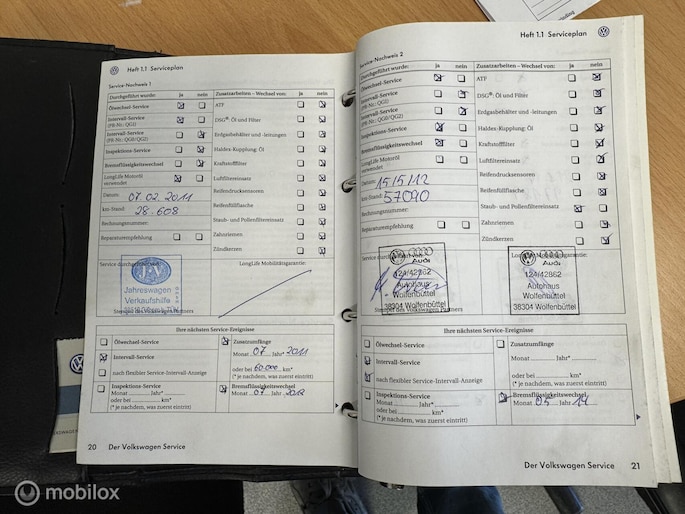 Heft 1.1 Serviceplan
Service-Nachweis 1
Durchgeführt wurde: ja nein
Zusatzarbeiten – Wechsel von: ja nein
Ölwechsel-Service
ATF
Intervall-Service
(PR-Nr.: QG1)
DSG®: Öl und Filter
Intervall-Service
(PR-Nr.: QG0/QG2)
Erdgasbehälter und -leitungen
Inspektions-Service
Haldex-Kupplung: Öl
Bremsflüssigkeitswechsel
Kraftstofffilter
LongLife Motoröl
verwendet
Luftfiltereinsatz
Datum: 07.02.2011
Reifendrucksensoren
Reifenfüllflasche
km-Stand: 28.608
Rechnungsnummer:
Staub- und Pollenfiltereinsatz
Reparaturempfehlung
Zahnriemen
Zündkerzen
Service durchgeführt
LongLife Mobilitätsgarantie:
Jahreswagen
Verkaufshilfe
Ihre nächsten Service-Ereignisse
Ölwechsel-Service
Zusatzumfänge
Monat 07 Jahr* 2011
Intervall-Service
oder bei 60.000 km*
nach flexibler Service-Intervall-Anzeige
(* je nachdem, was zuerst eintritt)
Inspektions-Service
Monat Jahr*
oder bei km*
(* je nachdem, was zuerst eintritt)
Bremsflüssigkeitswechsel
Monat 07 Jahr 2012
20 Der Volkswagen Service
Heft 1.1 Serviceplan
Service-Nachweis 2
Durchgeführt wurde: ja nein
Zusatzarbeiten – Wechsel von: ja nein
Ölwechsel-Service
ATF
Intervall-Service
(PR-Nr.: QG1)
DSG®: Öl und Filter
Intervall-Service
(PR-Nr.: QG0/QG2)
Erdgasbehälter und -leitungen
Inspektions-Service
Haldex-Kupplung: Öl
Bremsflüssigkeitswechsel
Kraftstofffilter
LongLife Motoröl
verwendet
Luftfiltereinsatz
Datum: 15/5/12
Reifendrucksensoren
km-Stand: 57090
Reifenfüllflasche
Rechnungsnummer:
Staub- und Pollenfiltereinsatz
Reparaturempfehlung
Zahnriemen
Zündkerzen
Service durchgeführt von:
Audi
124/42862
Autohaus
Wolfenbüttel
38304 Wolfenbüttel
Stempel des Volkswagen Partners
Audi
124/42862
Autohaus
Wolfenbüttel
38304 Wolfenbüttel
Ihre nächsten Service-Ereignisse
Ölwechsel-Service
Zusatzumfänge
Monat Jahr*
Intervall-Service
oder bei km*
nach flexibler Service-Intervall-Anzeige
(* je nachdem, was zuerst eintritt)
Inspektions-Service
Monat Jahr*
oder bei km*
(* je nachdem, was zuerst eintritt)
Bremsflüssigkeitswechsel
Monat 05 Jahr 14
Der Volkswagen Service 21
mobilox